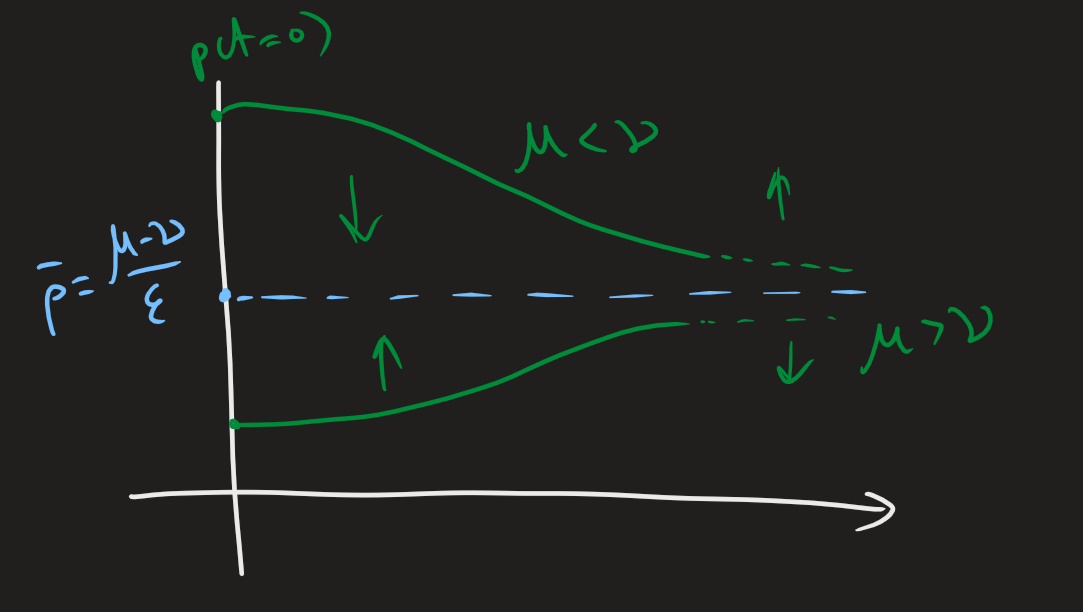 p(t=0)
μ<ν
p̄=(μ-ν)/ε
μ>ν